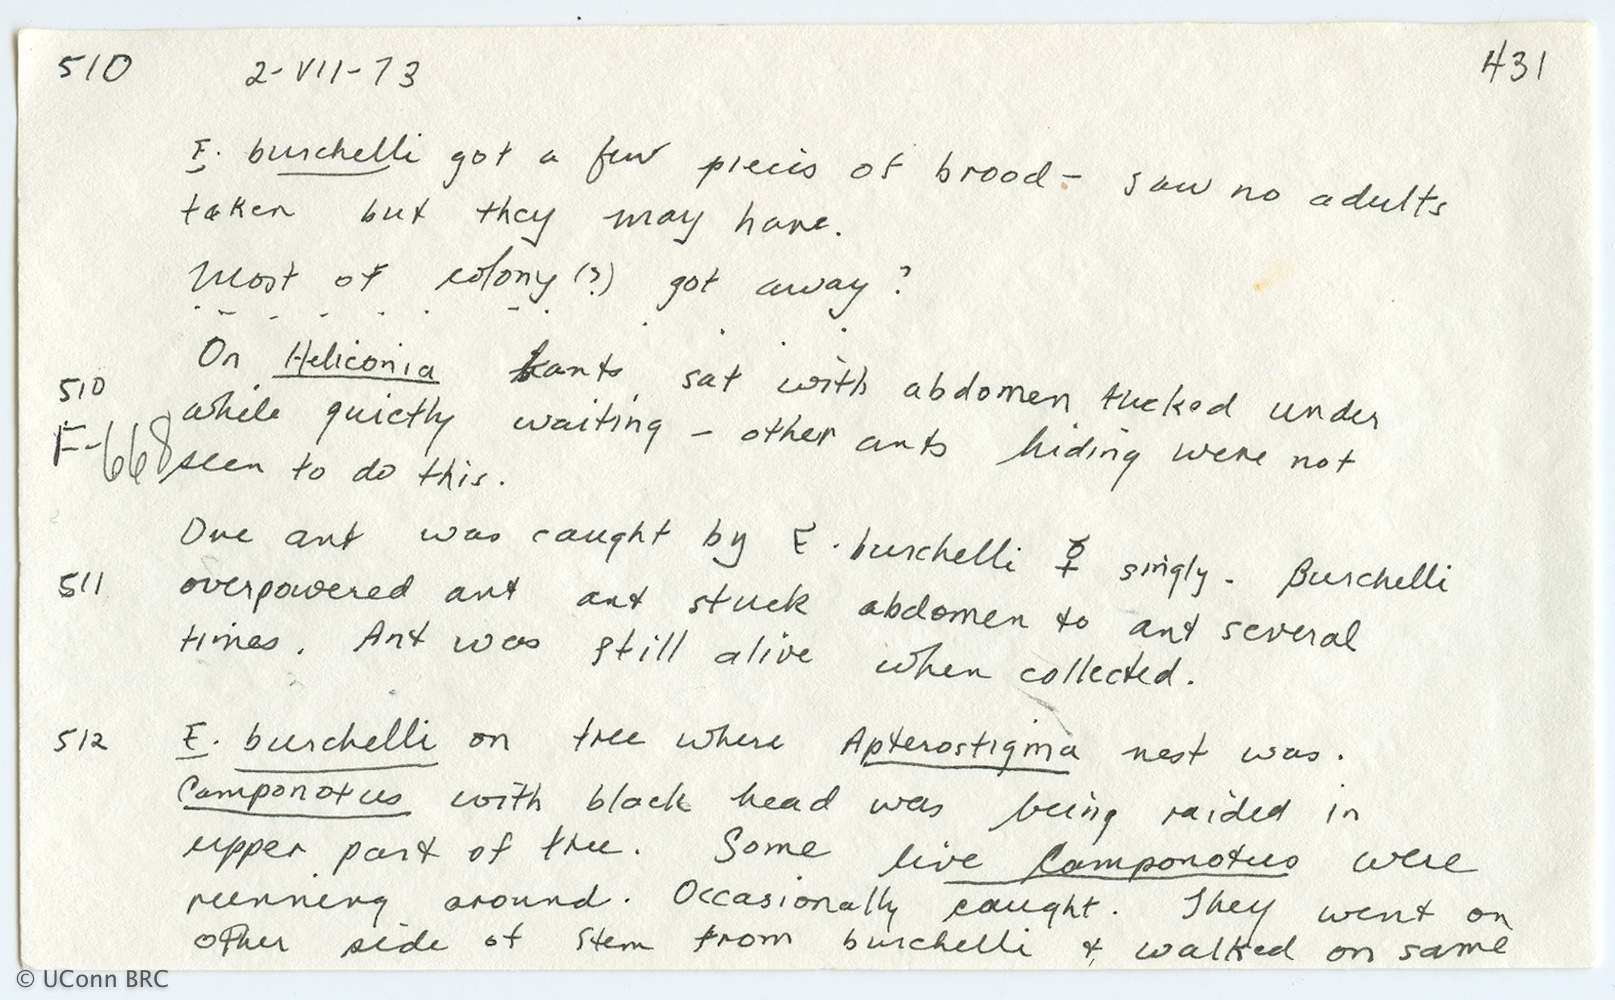 510 2-VII-73 431
E. burchelli got a few pieces of brood - saw no adults
taken but they may have.
Most of colony (?) got away?
On Heliconia ants sat with abdomen tucked under
510
while quietly waiting - other ants hiding were not
F-668
seen to do this.
One ant was caught by E. burchelli ☿ singly. Burchelli
511 overpowered ant ant stuck abdomen to ant several
times. Ant was still alive when collected.
512 E. burchelli on tree where Apterostigma nest was.
Camponotus with black head was being raided in
upper part of tree. Some live Camponotus were
running around. Occasionally caught. They went on
other side of stem from burchelli & walked on same
© UConn BRC